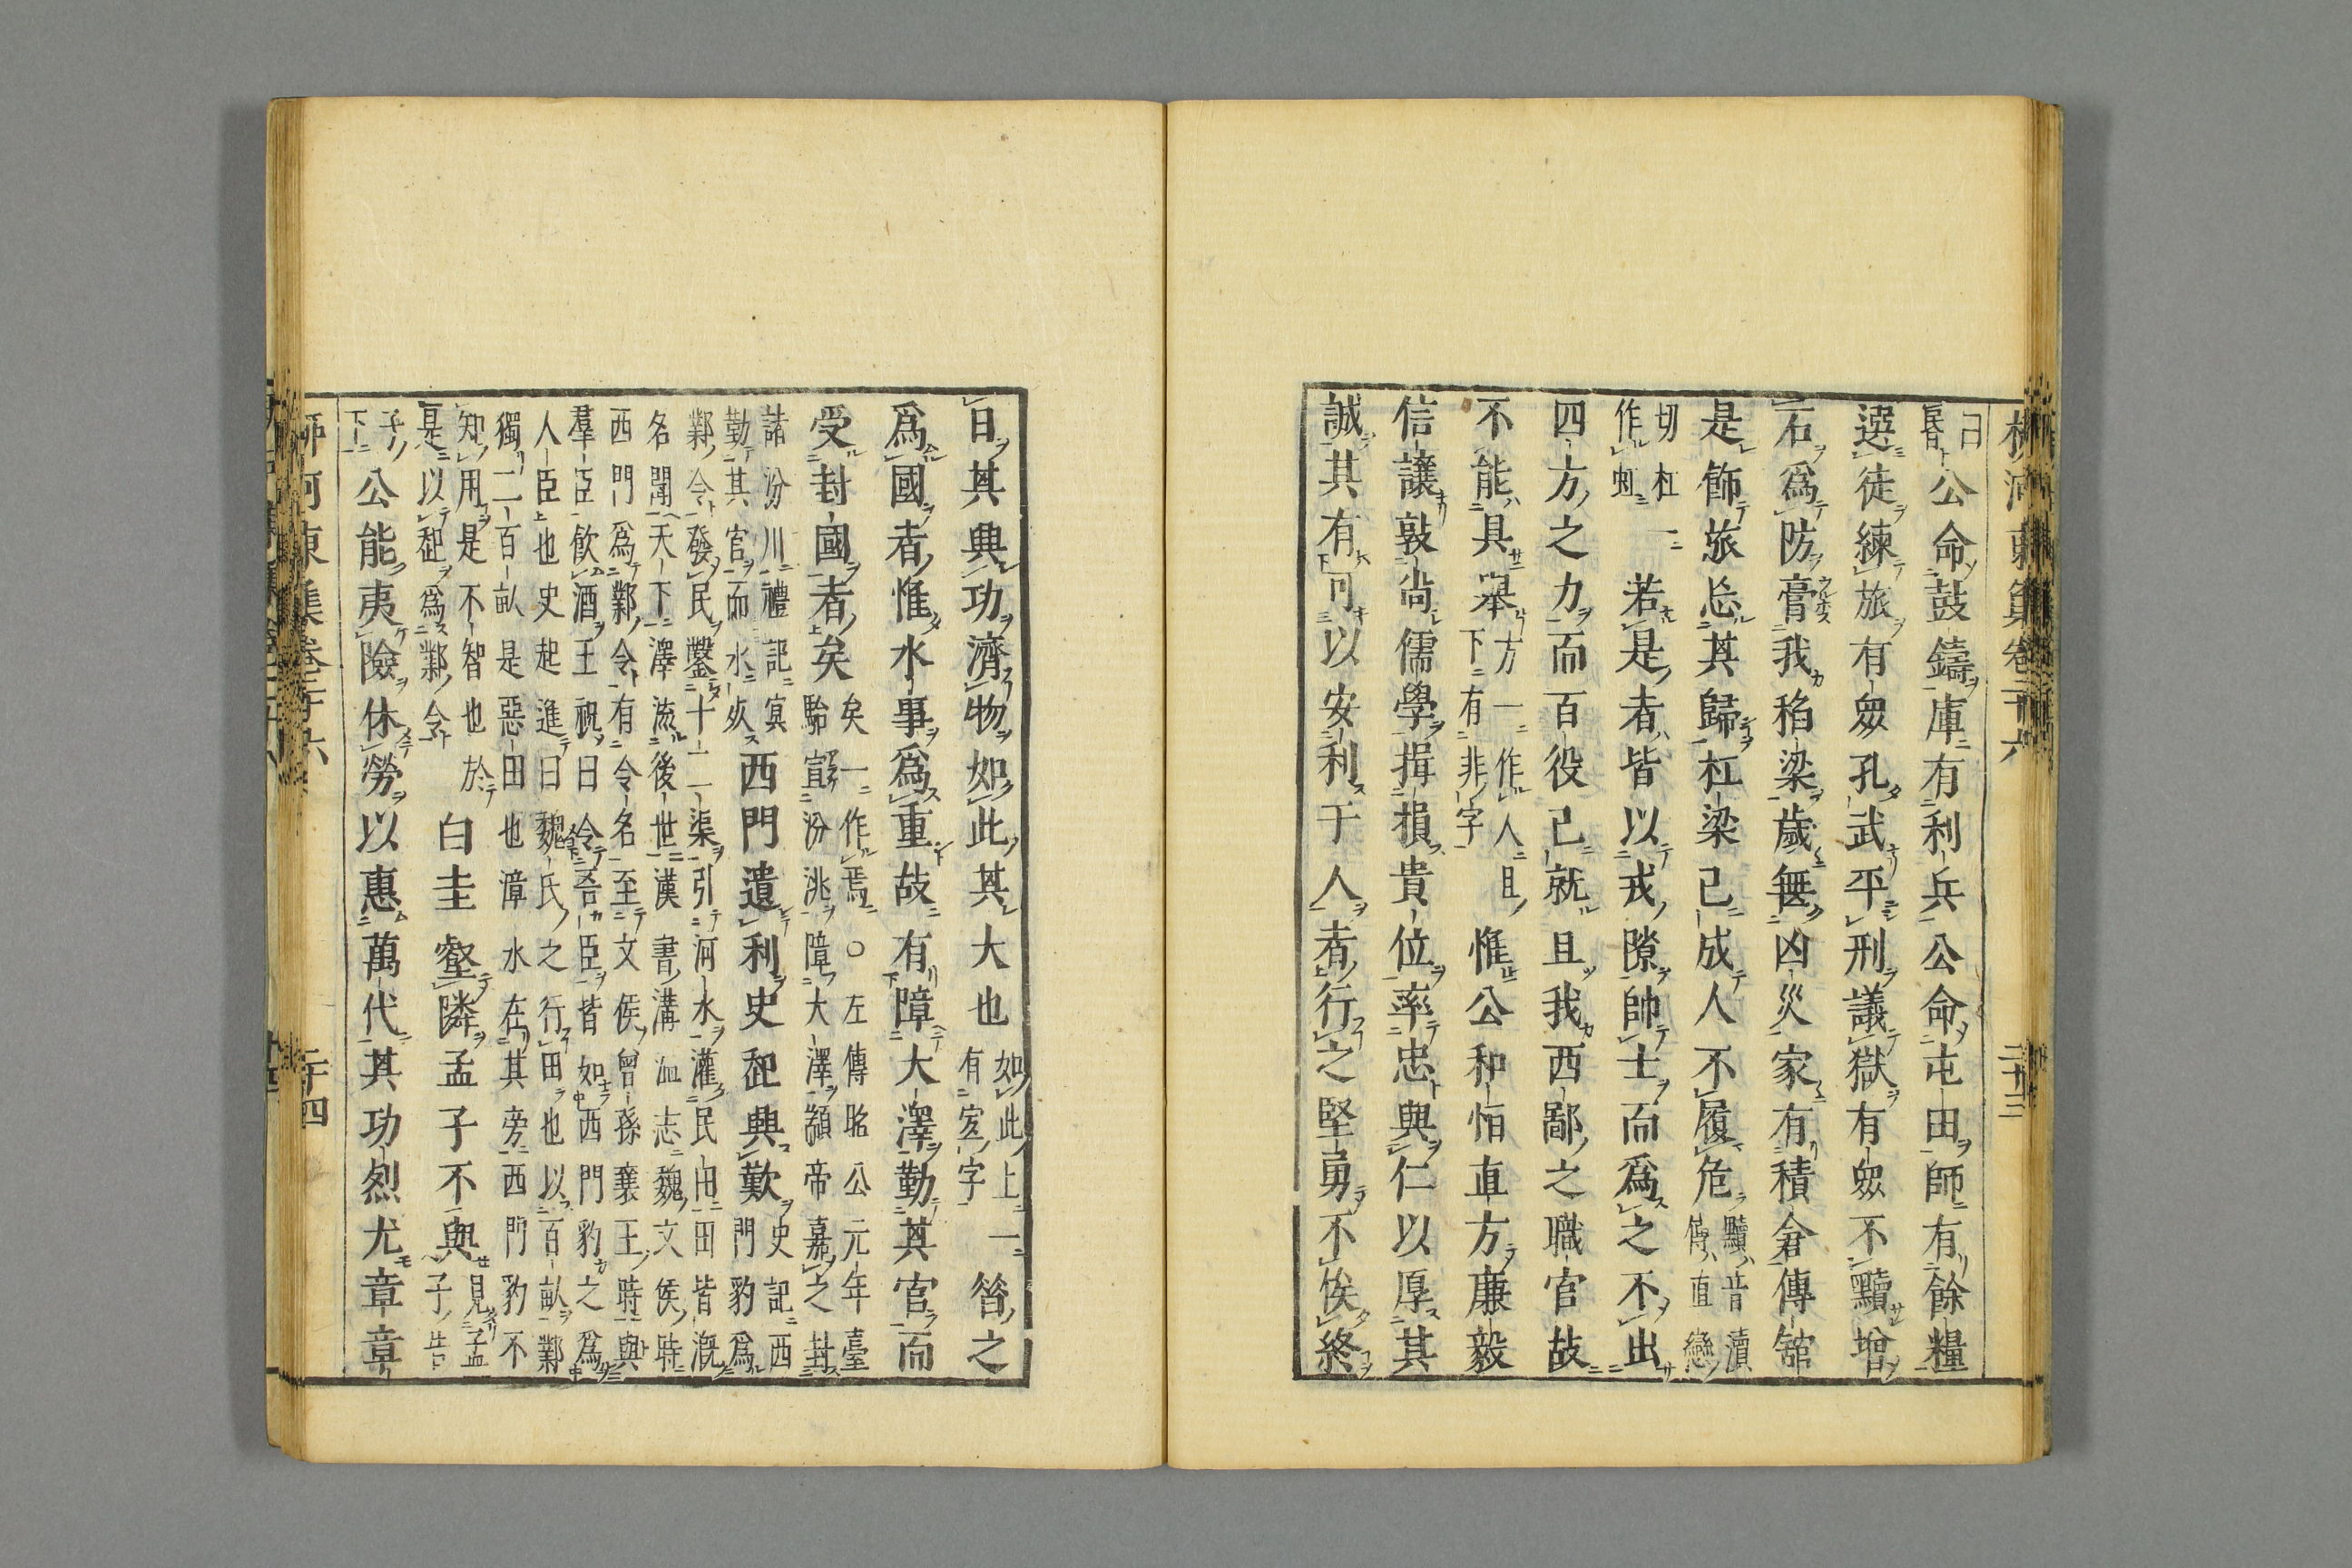 柳河東集卷二十六
二十三
公命鼓鑄庫有利兵公命屯田師有餘糧
選徒練旅有眾孔武平刑議獄有眾不黷增
石爲防膏我稻梁歲無凶災家有積倉傳舘
是飾旅忘其歸杠梁已成人不履危黷音瀆
傳直戀
切杠一
作虹
若是者皆以戎隙帥士而爲之不出
四方之力而百役已就且我西鄙之職官故
不能具舉方一作人且
下有非字
惟公和恒直方廉毅
信讓敦尚儒學揖損貴位率忠與仁以厚其
誠其有可以安利于人者行之堅勇不俟終
日其興功濟物如此其大也如此上一
有宏字
昔之
爲國者惟水事爲重故有障大澤勤其官而
受封國者矣矣一作焉○左傳昭公元年臺
駘宣汾洮障大澤顓帝嘉之封
諸汾川禮記冥
勤其官而水死
西門遺利史起興歎史記西
門豹爲
鄴令發民鑿十二渠引河水灌民田田皆漑
名聞天下澤流後世漢書溝洫志魏文侯時
西門爲鄴令有令名至文侯曾孫襄王時與
羣臣飲酒王祝曰令吾臣皆如西門豹之爲
人臣也史起進曰魏氏之行田也以百畝鄴
獨二百畝是惡田也漳水在其旁西門豹不
知用是不智也於
是以起爲鄴令
白圭壑隣孟子不與見孟
子告
子
下
公能夷險休勞以惠萬代其功烈尤章章
柳河東集卷二十六
二十四